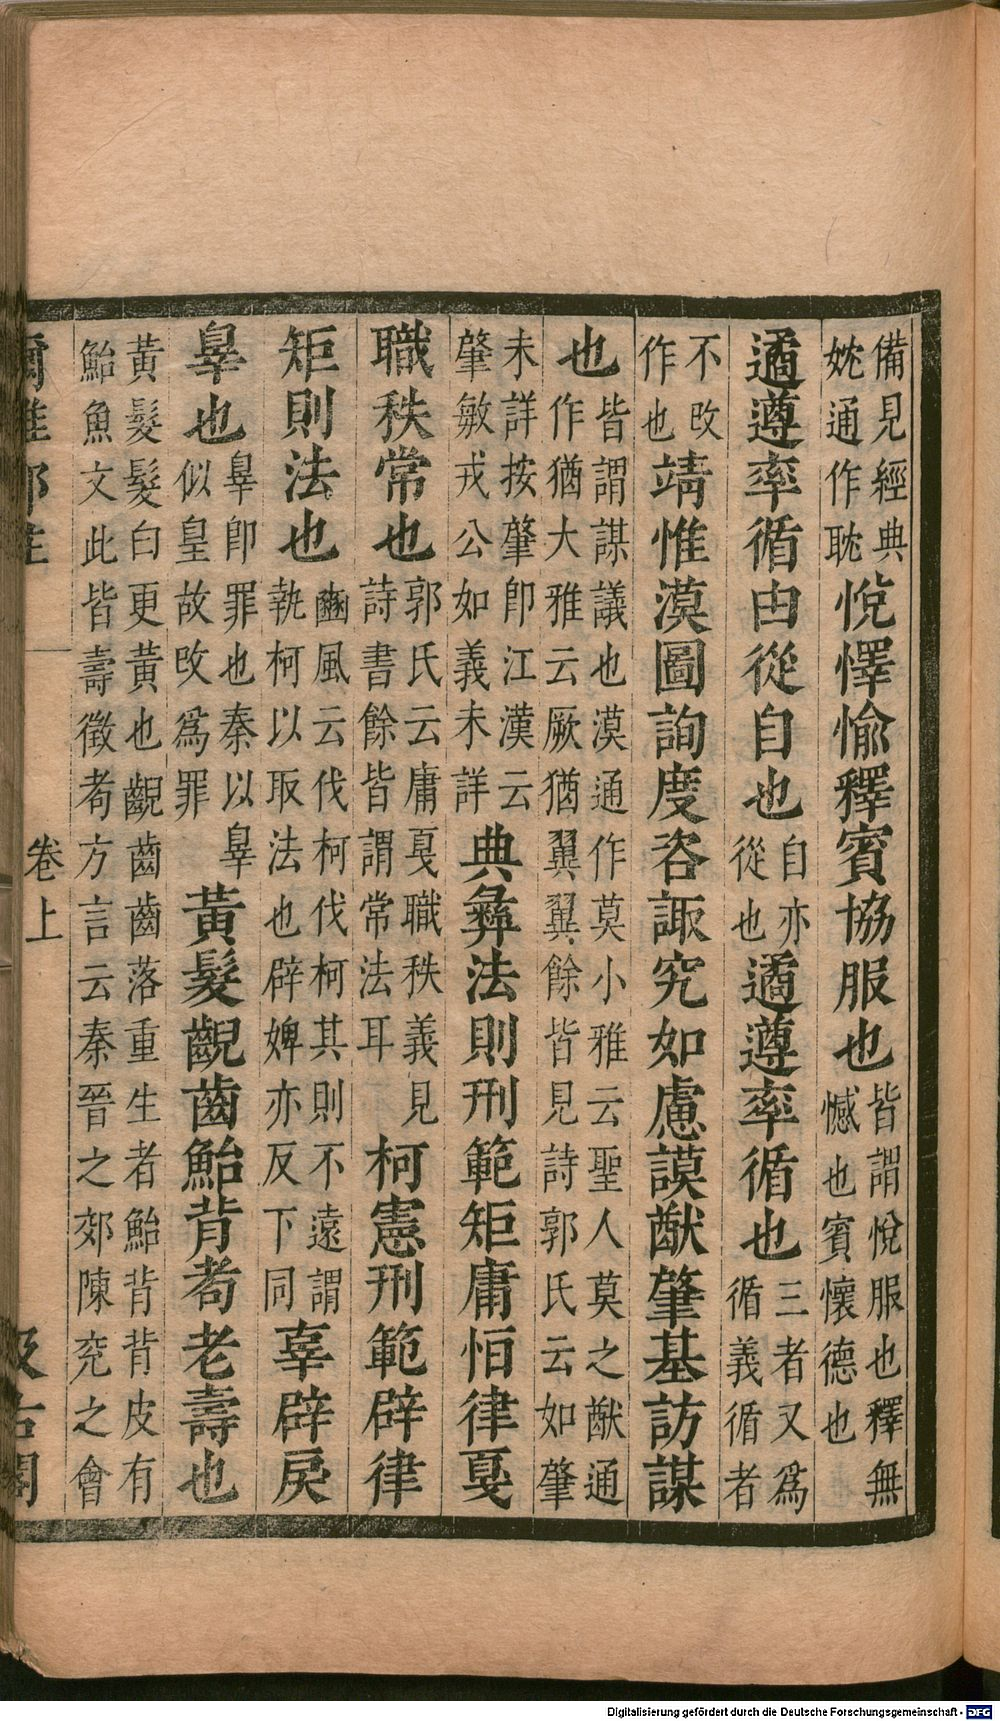 備見經典妉通作耽悅懌愉釋賓協服也皆謂悅服也釋無憾也賓懷德也
遹遵率循由從自也自亦從也遹遵率循也三者又爲循義循者
不改作也靖惟漠圖詢度咨諏究如慮謨猷肇基訪謀
也皆謂謀議也漠通作莫小雅云聖人莫之猷通作猶大雅云厥猶翼翼餘皆見詩郭氏云如肇
未詳按肇卽江漢云肇敏戎公如義未詳典彝法則刑範矩庸恒律戛
職秩常也郭氏云庸戛職秩義見詩書餘皆謂常法耳柯憲刑範辟律
矩則法也豳風云伐柯伐柯其則不遠謂執柯以取法也辟婢亦反下同辜辟戾
辠也辠卽罪也秦以辠似皇故改爲罪黃髮齯齒鮐背耇老壽也
黃髮髮白更黃也齯齒齒落重生者鮐背背皮有鮐魚文此皆壽徵耇方言云秦晉之郊陳兗之會
爾雅鄭注 卷上 汲古閣
Digitalisierung gefördert durch die Deutsche Forschungsgemeinschaft - DFG